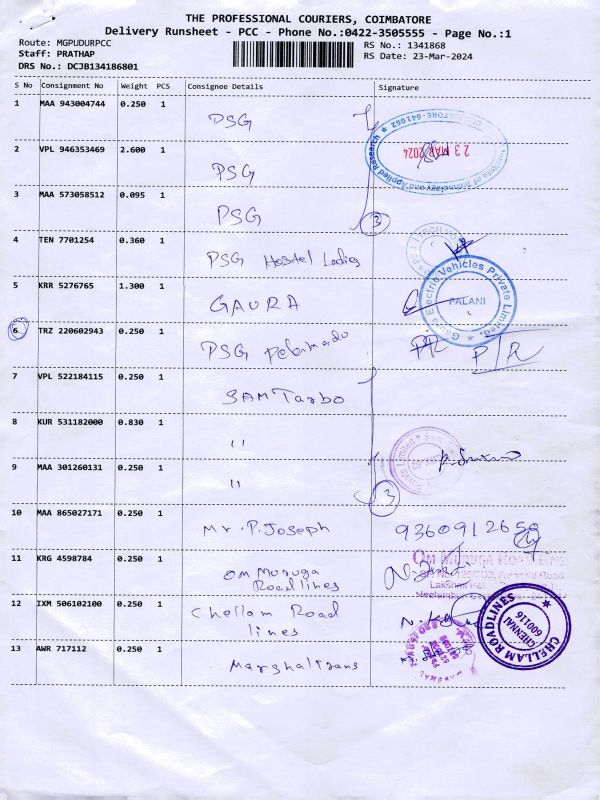 THE PROFESSIONAL COURIERS, COIMBATORE
Delivery Runsheet - PCC - Phone No.:0422-3505555 - Page No.:1
Route: MGPUDURPCC
RS No.: 1341868
Staff: PRATHAP
RS Date: 23-Mar-2024
DRS No.: DCJB134186801
S No Consignment No Weight PCS Consignee Details Signature
1 MAA 943004744 0.250 1 PSG
2 VPL 946353469 2.600 1 PSG
23 MAR 2024
3 MAA 573058512 0.095 1 PSG
3
4 TEN 7701254 0.360 1 PSG Hostel Ladies
5 KRR 5276765 1.300 1 GAURA
Gaura Electric Vehicles Private Limited.
PALANI
6 TRZ 220602943 0.250 1 PSG
P/R P/R
7 VPL 522184115 0.250 1 SAM Tarbo
8 KUR 531182000 0.830 1 "
9 MAA 301260131 0.250 1 "
3
10 MAA 865027171 0.250 1 Mr. P. Joseph
11 KRG 4598784 0.250 1 OM MURUGA
Roadlines
12 IXM 506102100 0.250 1 Chellam Road
lines
CHELLAM ROADLINES
CHENNAI
600116
13 AWR 717112 0.250 1 Marshal Trans